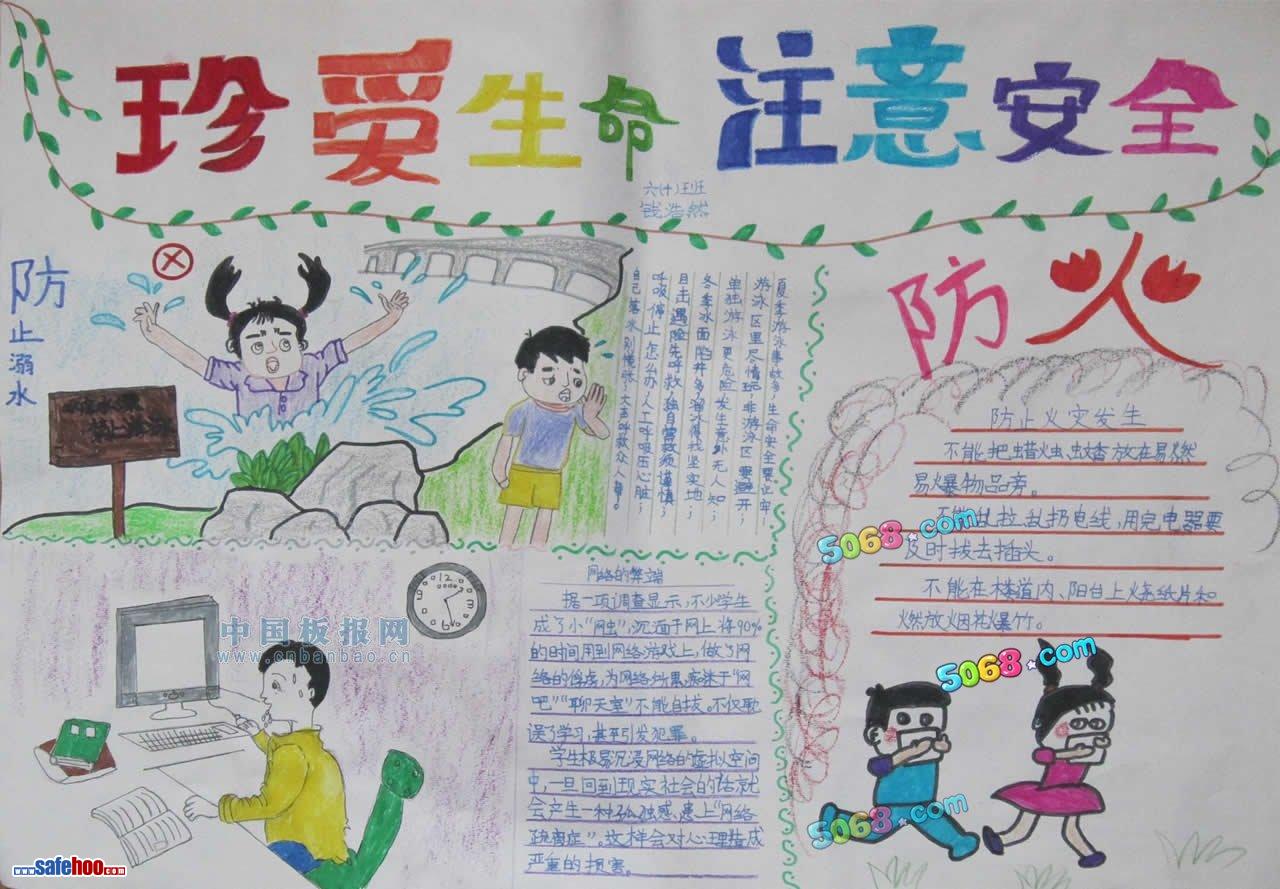 珍爱生命 注意安全
六(十)班
钱浩然
防止溺水
夏季游泳事故多,生命安全要正牢;
游泳区里尽情玩,非游泳区要避开;
单独游泳更危险,发生意外无人知;
冬季冰面陷井多,
目击遇险先呼救,独自营救须谨慎;
呼吸停止怎么办,人工呼吸压心脏;
自己落水别慌张,大声呼救众人帮。
防火
防止火灾发生
不能把蜡烛、蚊香放在易燃
易爆物品旁。
不能乱拉乱扔电线,用完电器要
及时拔去插头。
不能在楼道内、阳台上火烧纸片和
燃放烟花爆竹。
网络的弊端
据一项调查显示,不少学生
成了小“网虫”,沉湎于网上,将90%
的时间用到网络游戏上,做了网
络的俘虏,为网络所累,痴迷于“网
吧”“聊天室”不能自拔。不仅耽
误了学习,甚至引发犯罪。
学生极易沉浸网络的虚拟空间
中,一旦回到现实社会的话就
会产生一种孤独感,患上“网络
疏离症”。这样会对心理造成
严重的损害。
12
中国板报网
www.cnbanbao.cn
5068.com
5068.com
5068.com
www.safehoo.com